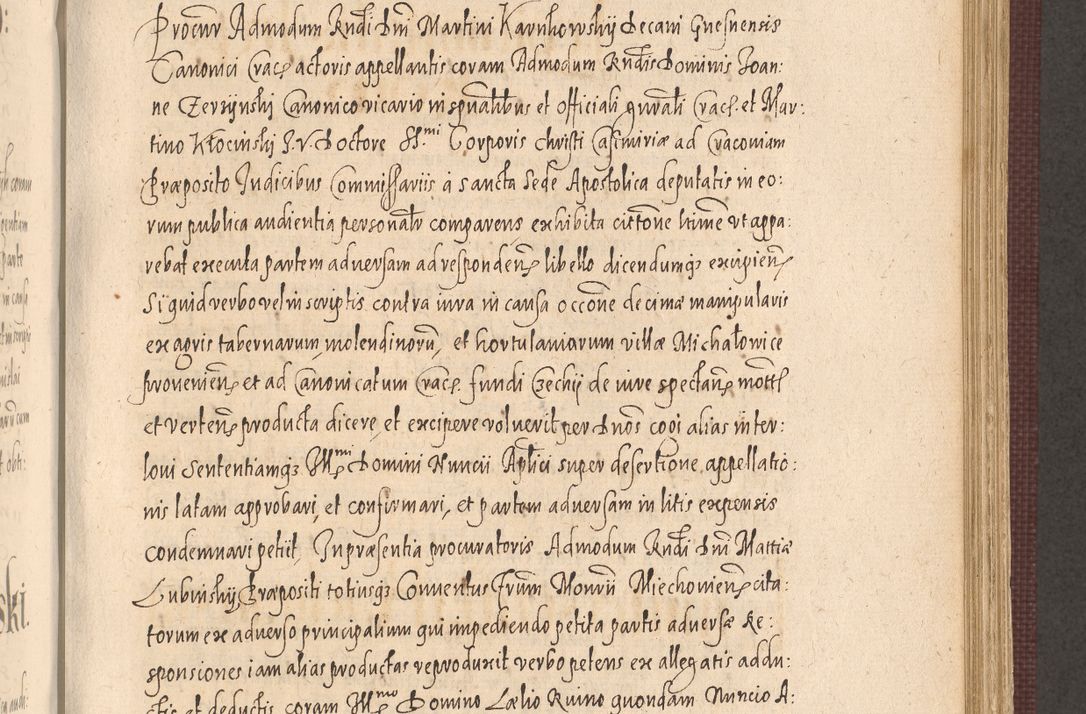 Procur Admodum Rndi Dni Martini Karnkowskÿ Decani Gnesnensis
Canonici Crac: actoris appellantis coram Admodum Rndis Dominis Joan:
ne Zerzÿnski Canonico vicario in spualibus et officiali gnrali Crac: et Mar:
tino Kłocinski J. V. Doctore SS.mi Corporis christi Casimiriæ ad Cracoviam
Præposito Judicibus Commissariis à sancta Sede Apostolica deputatis in eo:
rum publica audientia personalr comparens exhibita cittone ltime vt appa:
rebat executa partem adversam ad responden libello dicendumq excipien
Si quid verbo vel in scriptis contra iura in causa occone decimæ manipularis
ex agris tabernarum, molendinorũ, et hortulaniarum villæ Michałowice
provenien et ad Canonicatum Crac: fundi Czechÿ de iure spectan mott
et verten producta dicere, et excipere voluerit per Dnos cogi alias inter:
loui Sententiamq Illmi Domini Nuncii Aplici super desertione appellatio:
nis latam approbari, et confirmari, et partem adversam in litis expensis
condemnari petiit, In præsentia procuratoris Admodum Rndi Dni Mattiæ
Lubinskÿ Præpositi totiusq Conventus Frum Monrii Miechovien cita:
torum ex adverso principalium qui impediendo petita partis adversæ Re:
sponsiones iam alias productas reproduxit verbo petens ex allegatis addu:
ctis et deductis coram Illmo Domino Lælio Ruino quondam Nuncio A: